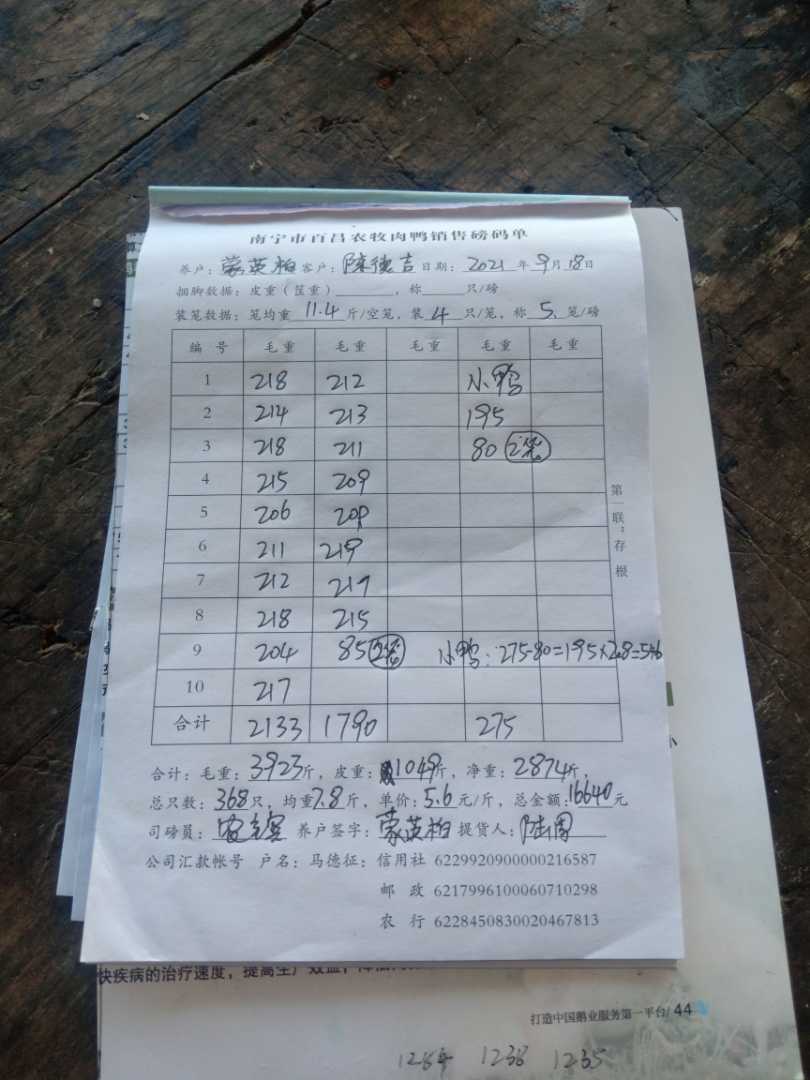 南宁市百昌农牧肉鸭销售磅码单
养户: 蒙英柏 客户: 陆德吉 日期: 2021 年 9 月 18 日
捆脚数据: 皮重(筐重) , 称 只/磅
装笼数据: 笼均重 11.4 斤/空笼, 装 4 只/笼, 称 5 笼/磅
编 号 毛重 毛重 毛重 毛重 毛重
1 218 212 小鸭
2 214 213 195
3 218 211 80 2笼
4 215 209
5 206 209
6 211 219
7 212 217
8 218 215
9 204 85 2笼 小鸭: 275-80=195×2.8=546
10 217
合计 2133 1790 275
第一联:存根
合计: 毛重: 3923 斤, 皮重: 1049 斤, 净重: 2874 斤,
总只数: 368 只, 均重 7.8 斤, 单价: 5.6 元/斤, 总金额: 16640 元
司磅员: 养户签字: 蒙英柏 提货人: 陆
公司汇款帐号 户名: 马德征: 信用社 6229920900000216587
邮 政 6217996100060710298
农 行 6228450830020467813
快疾病的治疗速度, 提高生产效益,
打造中国鹅业服务第一平台/ 44
1238 1235